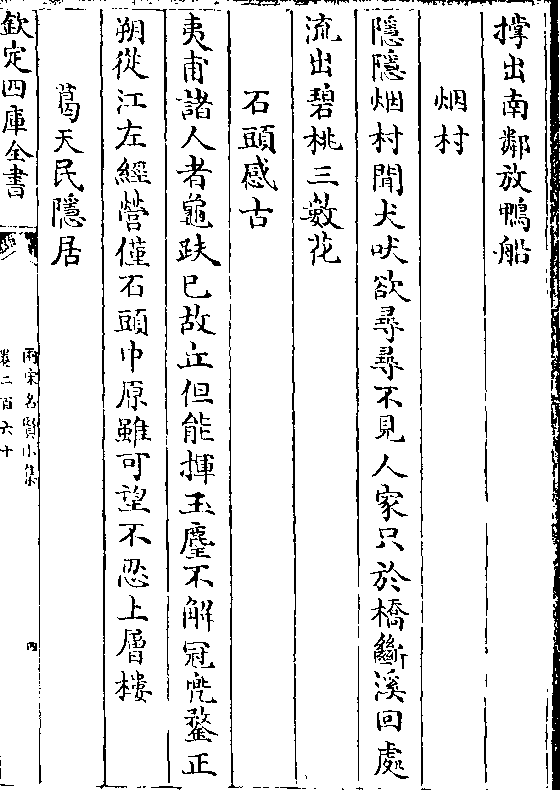 撑出南鄰放鴨船
烟村
隱隱烟村聞犬吠欲尋尋不見人家只於橋斷溪回處
流出碧桃三數花
石頭感古
夷甫諸人者龜趺已故丘但能揮玉麈不解冠兠鍪正
朔從江左經營僅石頭巾原雖可望不忍上層樓
葛天民隱居
欽定四庫全書
兩宋名賢小集
卷二百六十
四